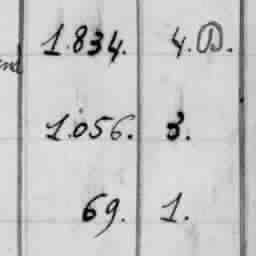 1.834. 4.
1.056. 3.
69. 1.